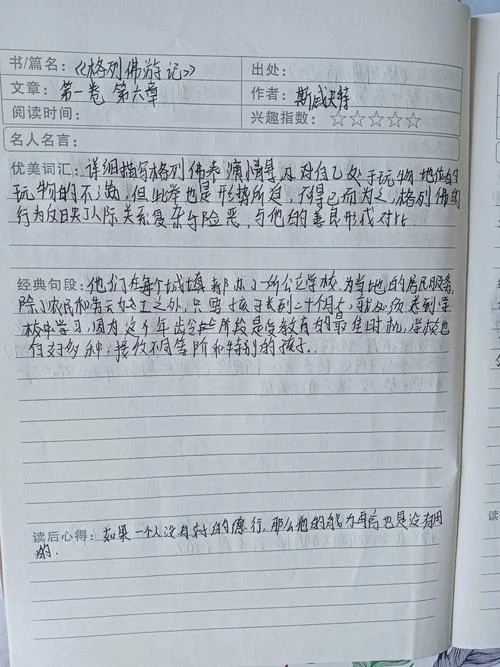 书/篇名：《格列佛游记》 出处：
文章：第一卷 第六章 作者：斯威夫特
阅读时间： 兴趣指数：☆☆☆☆☆
名人名言：
优美词汇：详细描写格列佛 及对自己处于玩物地位的
玩物的不满，但此举也是形势所迫，不得已而为之，格列佛的
行为反日关了人际关系复杂与险恶，与他的善良形成对比
经典句段：他们在每个城镇都办了所公立学校，为当地的居民服务
除了农民和劳动的工之外，只要孩子长到二十个月大，就必须送到学
校中学习，因为这个年 阶段是受教育的最佳时机，学校也
有好多种，接收不同等阶和特别的孩子.
读后心得：如果一个人没有好的德行，那么他的能力再高也是没有用
的.